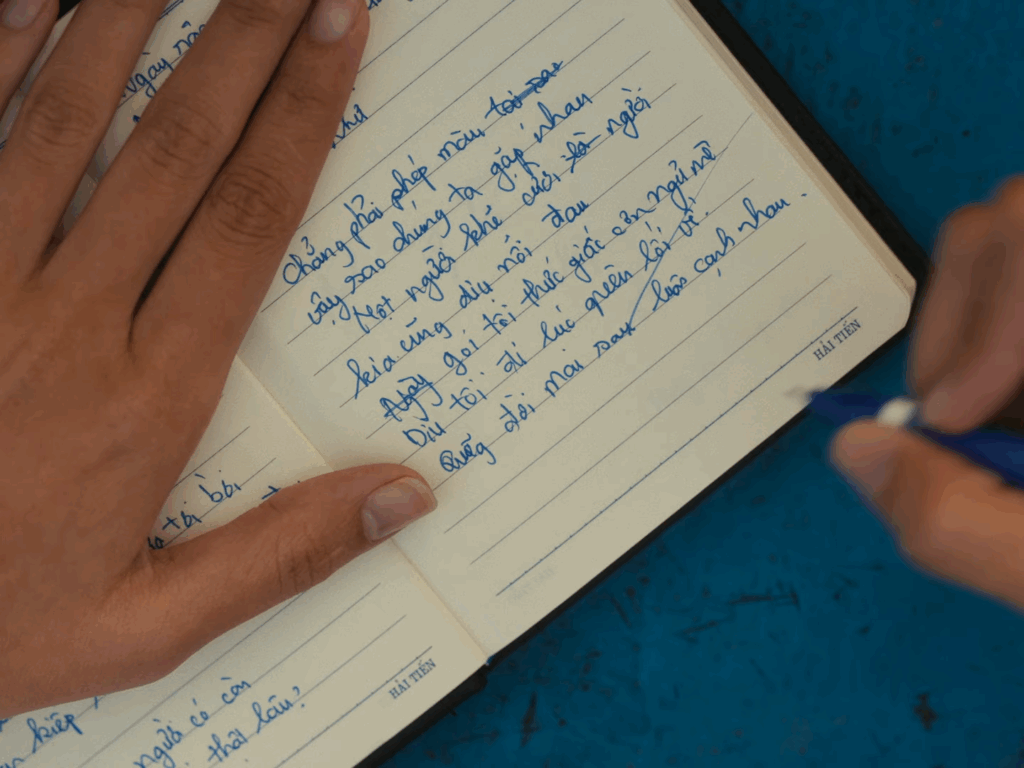 Ngày nà
chẳng phải phép màu tại sao
vậy sao chúng ta gặp nhau
Một người khẽ cười, là người
kia cũng dịu nỗi đau
Ngày gọi tôi thức giấc ên ngủ
Dìu tôi đi lúc quên lối về.
Quãng đời mai sau luôn cạnh nhau.
HẢI TIẾN
tôi bồi
kiếp
người có còn
thật lâu?
HẢI TIẾN